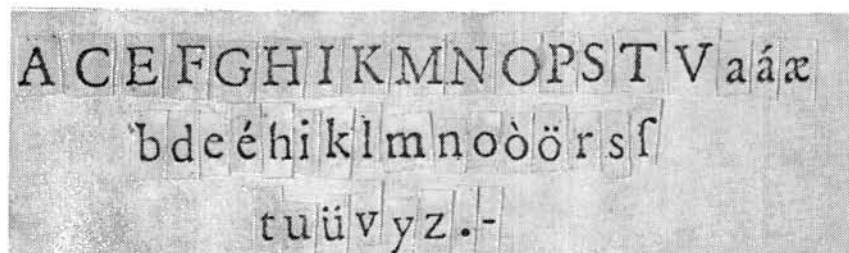 A C E F G H I K M N O P S T V a á æ
b d e é h i k l m n o ò ö r s ſ
t u ü v y z . -